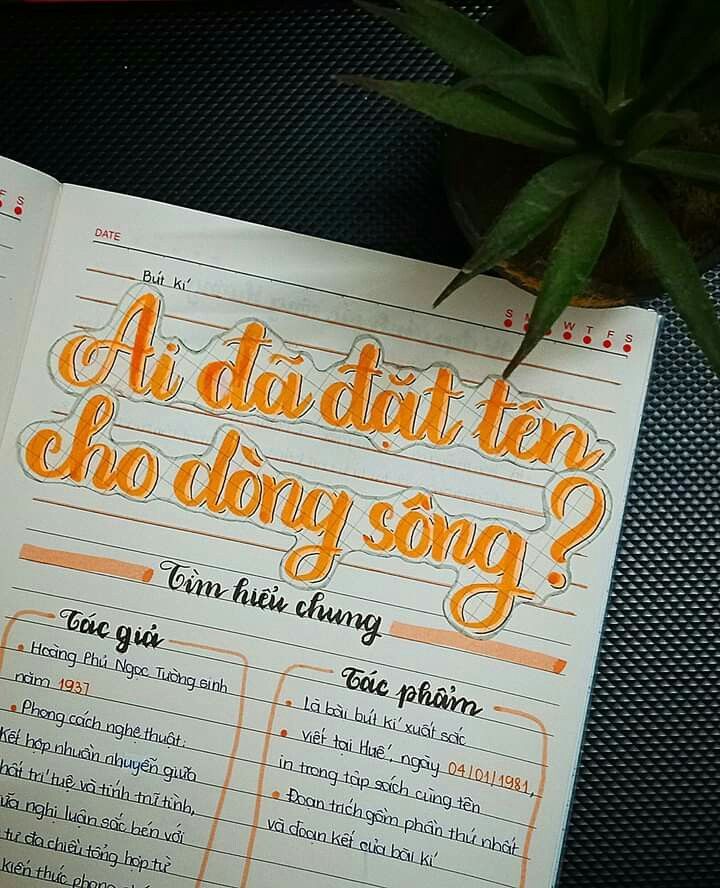 F S
DATE
S M W T F S
Bút kí
Ai đã đặt tên
cho dòng sông?
Tìm hiểu chung
Tác giả
• Hoàng Phủ Ngọc Tường sinh
năm 1937
• Phong cách nghệ thuật:
Kết hợp nhuần nhuyễn giữa
chất trí tuệ và tính trữ tình,
giữa nghị luận sắc bén với
tư đa chiều tổng hợp từ
kiến thức phong
Tác phẩm
• Là bài bút kí xuất sắc
• viết tại Huế, ngày 04/01/1981,
in trong tập sách cùng tên
• Đoạn trích gồm phần thứ nhất
và đoạn kết của bài kí